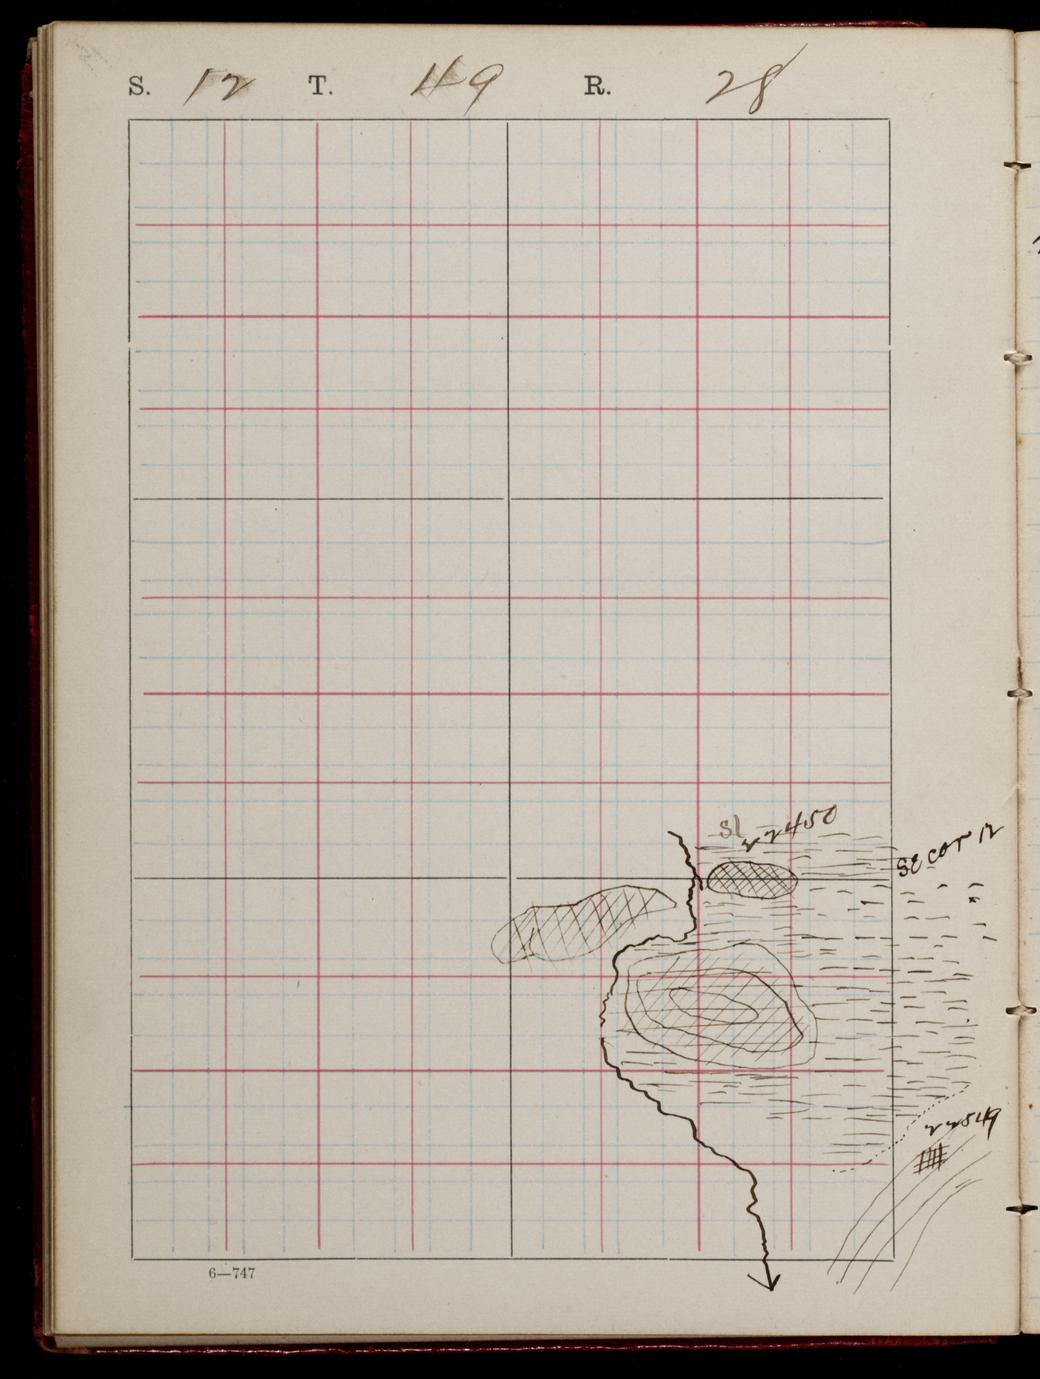 S. 12 T. 49 R. 28
Sl
22450
SE cor 12
22549
6—747